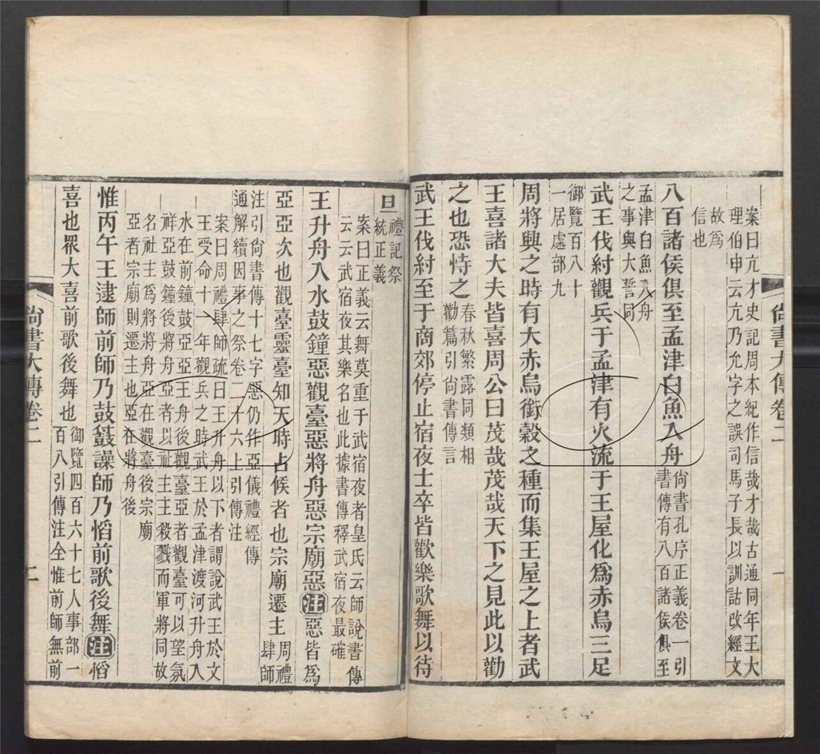 尙書大傳卷二
一
案曰亢才史記周本紀作信哉才哉古通同年王大
理伯申云亢乃允字之誤司馬子長以訓詁改經文
故爲
信也
八百諸侯俱至孟津白魚入舟
尙書孔序正義卷一引
書傳有八百諸侯俱至
孟津白魚入舟
之事與大誓同
武王伐紂觀兵于孟津有火流于王屋化爲赤烏三足
御覽百八十
一居處部九
周將興之時有大赤烏銜穀之種而集王屋之上者武
王喜諸大夫皆喜周公曰茂哉茂哉天下之見此以勸
之也恐恃之
春秋繁露同類相
動篇引尙書傳言
武王伐紂至于商郊停止宿夜士卒皆歡樂歌舞以待
旦
禮記祭
統正義
案曰正義云舞莫重于武宿夜者皇氏云師說書傳
云云武宿夜其樂名也此據書傳釋武宿夜最確
王升舟入水鼓鐘惡觀臺惡將舟惡宗廟惡注惡皆爲
亞亞次也觀臺靈臺知天時占候者也宗廟遷主
周禮
肆師
注引尙書傳十七字惡仍作亞儀禮經傳
通解續因事之祭卷二十六上引傳注
案曰周禮肆師疏曰王升舟以下者謂說武王於文
王受命十一年觀兵之時武王於孟津渡河升舟入
水在前鐘鼓亞亞王舟後觀臺亞者觀臺可以望氛
祥亞鼓鐘後將舟亞者以社主主殺戮而軍將同故
名社主爲將將舟亞在觀臺後宗廟
亞者宗廟則遷主也亞在將舟後
惟丙午王逮師前師乃鼓鼖譟師乃慆前歌後舞注慆
喜也眾大喜前歌後舞也
御覽四百六十七人事部一
百八引傳注全惟前師無前
尙書大傳卷二
二